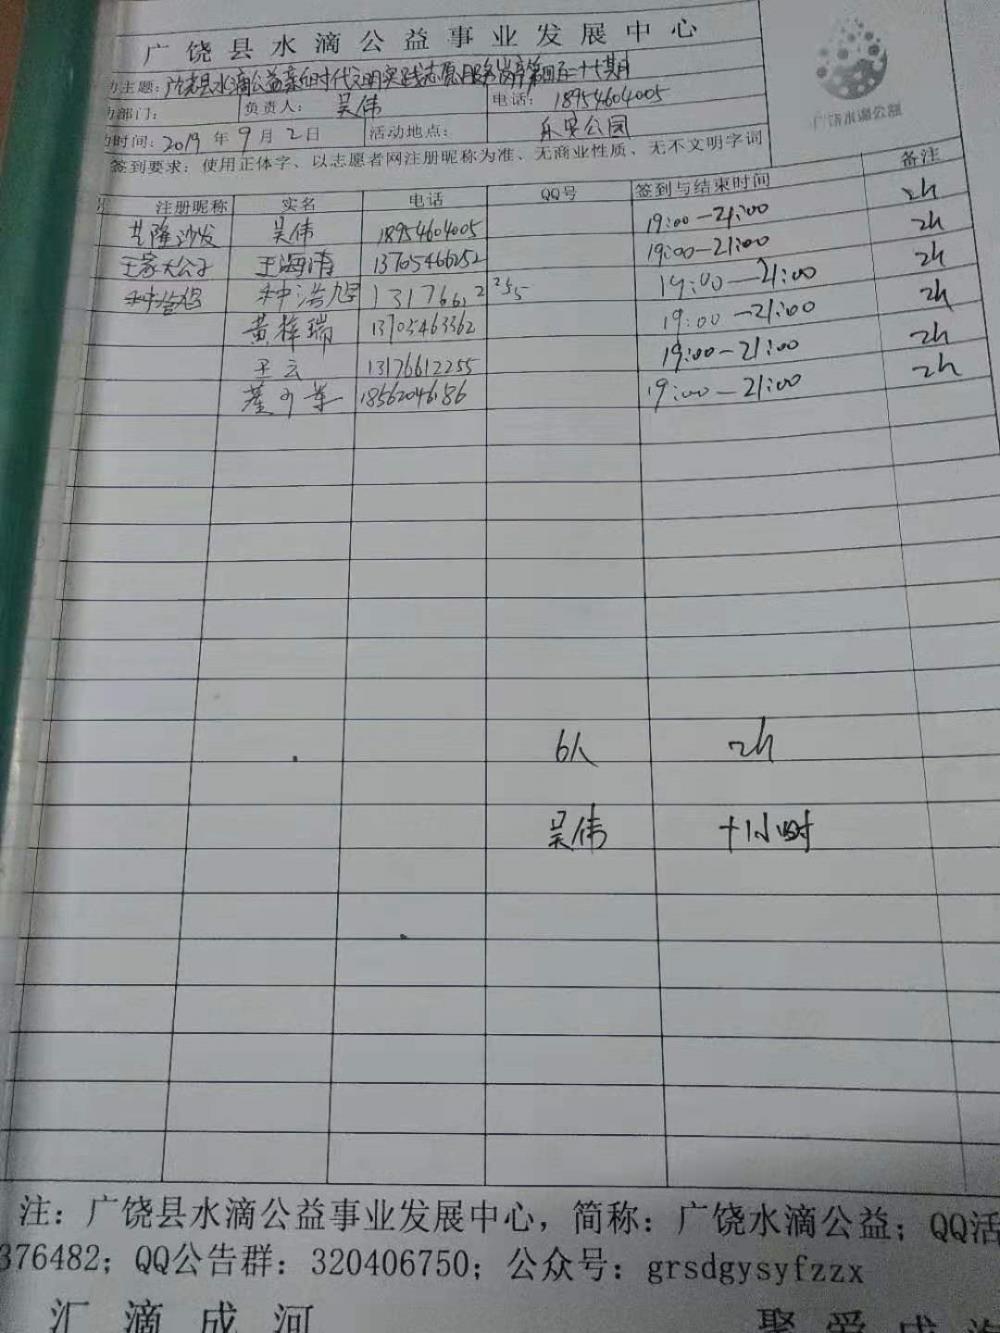 广饶县水滴公益事业发展中心
主题：广饶县水滴公益新时代文明实践志愿服务岗亭第四百十七期
部门： 负责人：吴伟 电话：18954604005
时间：2019年9月2日 活动地点：乐安公园
签到要求：使用正体字、以志愿者网注册昵称为准、无商业性质、无不文明字词
广饶水滴公益
注册昵称 实名 电话 QQ号 签到与结束时间 备注
沙发 吴伟 18954604005 19:00—21:00 2h
王家大公子 王海涛 13705466252 19:00—21:00 2h
种浩旭 种浩旭 13176612255 19:00—21:00 2h
黄梓瑞 13705463362 19:00—21:00 2h
王云 13176612255 19:00—21:00 2h
18562046186 19:00—21:00 2h
6人 2h
吴伟 +1小时
注：广饶县水滴公益事业发展中心，简称：广饶水滴公益；QQ活
376482；QQ公告群：320406750；公众号：grsdgysyfzzx
汇滴成河 聚爱成海